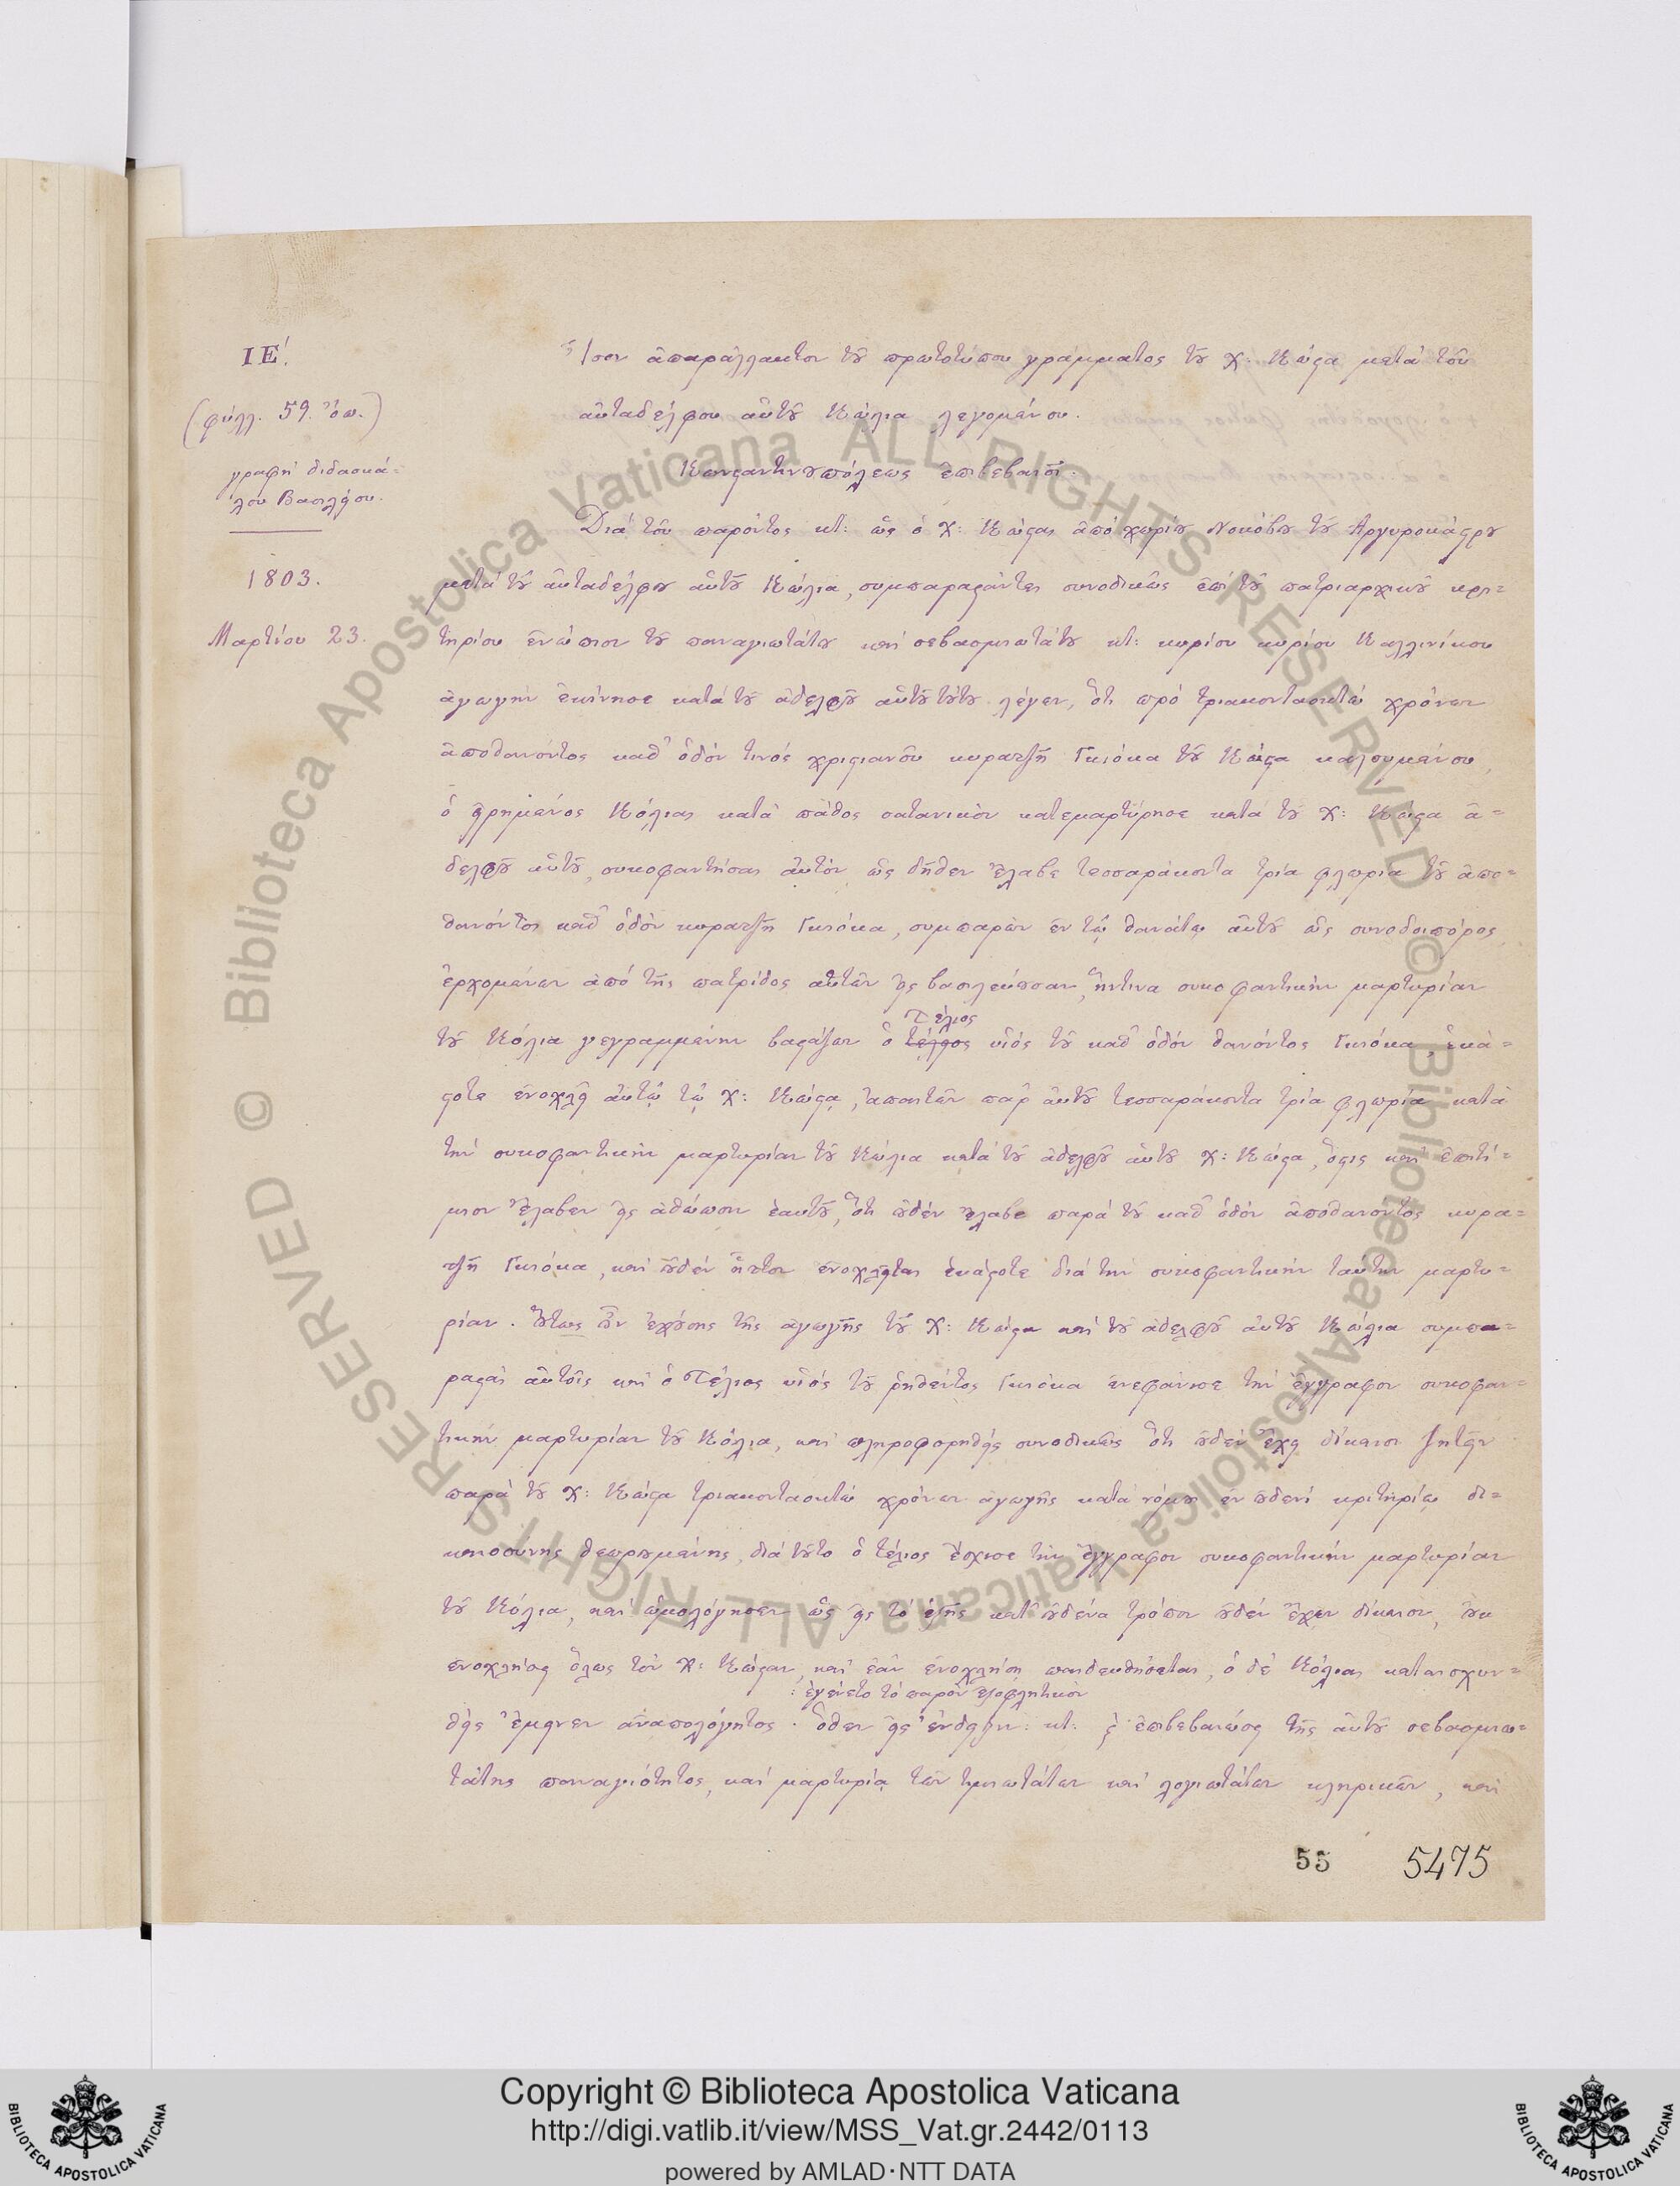 ΙΕʹ.
(φύλλ. 59. ὄπ.)
γραφὴ διδασκά=
λου Βασιλείου.
1803.
Μαρτίου 23.
Ἴσον ἀπαράλλακτον τοῦ πρωτοτύπου γράμματος τοῦ χ: Κώστα μετὰ τοῦ
αὐταδέλφου αὐτοῦ Κώλια λεγομένου.
Κωνσταντινουπόλεως ἐπιβεβαιοῖ.
Διὰ τοῦ παρόντος κτ: ὡς ὁ χ: Κώστας ἀπὸ χωρίου Νοκόβου τοῦ Ἀργυροκάστρου
μετὰ τοῦ αὐταδέλφου αὐτοῦ Κώλια, συμπαραστάντες συνοδικῶς ἐπὶ τοῦ πατριαρχικοῦ κρι=
τηρίου ἐνώπιον τοῦ παναγιωτάτου καὶ σεβασμιωτάτου κτ: κυρίου κυρίου Καλλινίκου
ἀγωγὴν ἐκίνησε κατὰ τοῦ ἀδελφοῦ αὐτοῦ τούτου λέγων, ὅτι πρὸ τριακονταοκτὼ χρόνων
ἀποθανόντος καθ' ὁδόν τινός χριστιανοῦ κυρατζῆ Γκιόκα τοῦ Κώστα καλουμένου,
ὁ εἰρημένος Κόλιας κατὰ πάθος σατανικὸν κατεμαρτύρησε κατὰ τοῦ χ: Κώστα ἀ=
δελφοῦ αὐτοῦ, συκοφαντήσας αὐτὸν ὡς δῆθεν ἔλαβε τεσσαράκοντα τρία φλωρία τοῦ ἀπο=
θανόντος καθ' ὁδὸν κυρατζῆ Γκιόκα, συμπαρὼν ἐν τῷ θανάτῳ αὐτοῦ ὡς συνοδοιπόρος,
ἐρχομένων ἀπὸ τῆς πατρίδος αὐτῶν εἰς βασιλεύουσαν, ἥντινα συκοφαντικὴν μαρτυρίαν
Τέλιος
τοῦ Κόλια γεγραμμένην βαστάζων ὁ τέλιος υἱός τοῦ καθ' ὁδόν θανόντος Γκιόκα, ἑκά=
στοτε ἐνοχλεῖ αὐτῷ τῷ χ: Κώστᾳ, ἀπαιτῶν παρ' αὐτοῦ τεσσαράκοντα τρία φλωρία κατὰ
τὴν συκοφαντικὴν μαρτυρίαν τοῦ Κώλια κατὰ τοῦ ἀδελφοῦ αὐτοῦ χ: Κώστα, ὅστις καὶ ἐπιτί=
μιον ἔλαβεν εἰς ἀθώωσιν ἑαυτοῦ, ὅτι οὐδὲν ἔλαβε παρὰ τοῦ καθ' ὁδὸν ἀποθανόντος κυρα=
τζῆ Γκιόκα, καὶ οὐδὲν ἧττον ἐνοχλεῖται ἑκάστοτε διὰ τὴν συκοφαντικὴν ταύτην μαρτυ=
ρίαν. Οὕτως οὖν ἐχούσης τῆς ἀγωγῆς τοῦ χ: Κώστα καὶ τοῦ ἀδελφοῦ αὐτοῦ Κώλια συμπα=
ραστὰς αὐτοῖς καὶ ὁ Τέλιος υἱός τοῦ ῥηθέντος Γκιόκα ἐνεφάνισε τὴν ἔγγραφον συκοφαν=
τικὴν μαρτυρίαν τοῦ Κόλια, καὶ πληροφορηθεὶς συνοδικῶς ὅτι οὐδὲν ἔχει δίκαιον ζητεῖν
παρὰ τοῦ χ: Κώστα τριακονταοκτὼ χρόνων ἀγωγῆς κατὰ νόμου ἐν οὐδενὶ κριτηρίῳ δι=
καιοσύνης θεωρουμένης, διὰ τοῦτο ὁ τέλιος ἔσχισε τὴν ἔγγραφον συκοφαντικὴν μαρτυρίαν
τοῦ Κόλια, καὶ ὡμολόγησεν ὡς εἰς τὸ ἑξῆς κατ' οὐδένα τρόπον οὐδὲν ἔχων δίκαιον, οὐκ
ἐνοχλήσει ὅλως τὸν χ: Κώσταν, καὶ ἐὰν ἐνοχλήσῃ παιδευθήσεται, ὁ δὲ Κόλιας καταισχυν=
: ἐγένετο τὸ παρὸν ἐξοφλητικὸν
θεὶς ἔμεινεν ἀναπολόγητος. ὅθεν εἰς ἔνδειξιν: κτ: ἐπιβεβαιώσει τῆς αὐτοῦ σεβασμιω=
τάτης παναγιότητος, καὶ μαρτυρίᾳ τῶν τιμιωτάτων καὶ λογιωτάτων κληρικῶν, καὶ
55 5475
Copyright © Biblioteca Apostolica Vaticana
http://digi.vatlib.it/view/MSS_Vat.gr.2442/0113
powered by AMLAD·NTT DATA